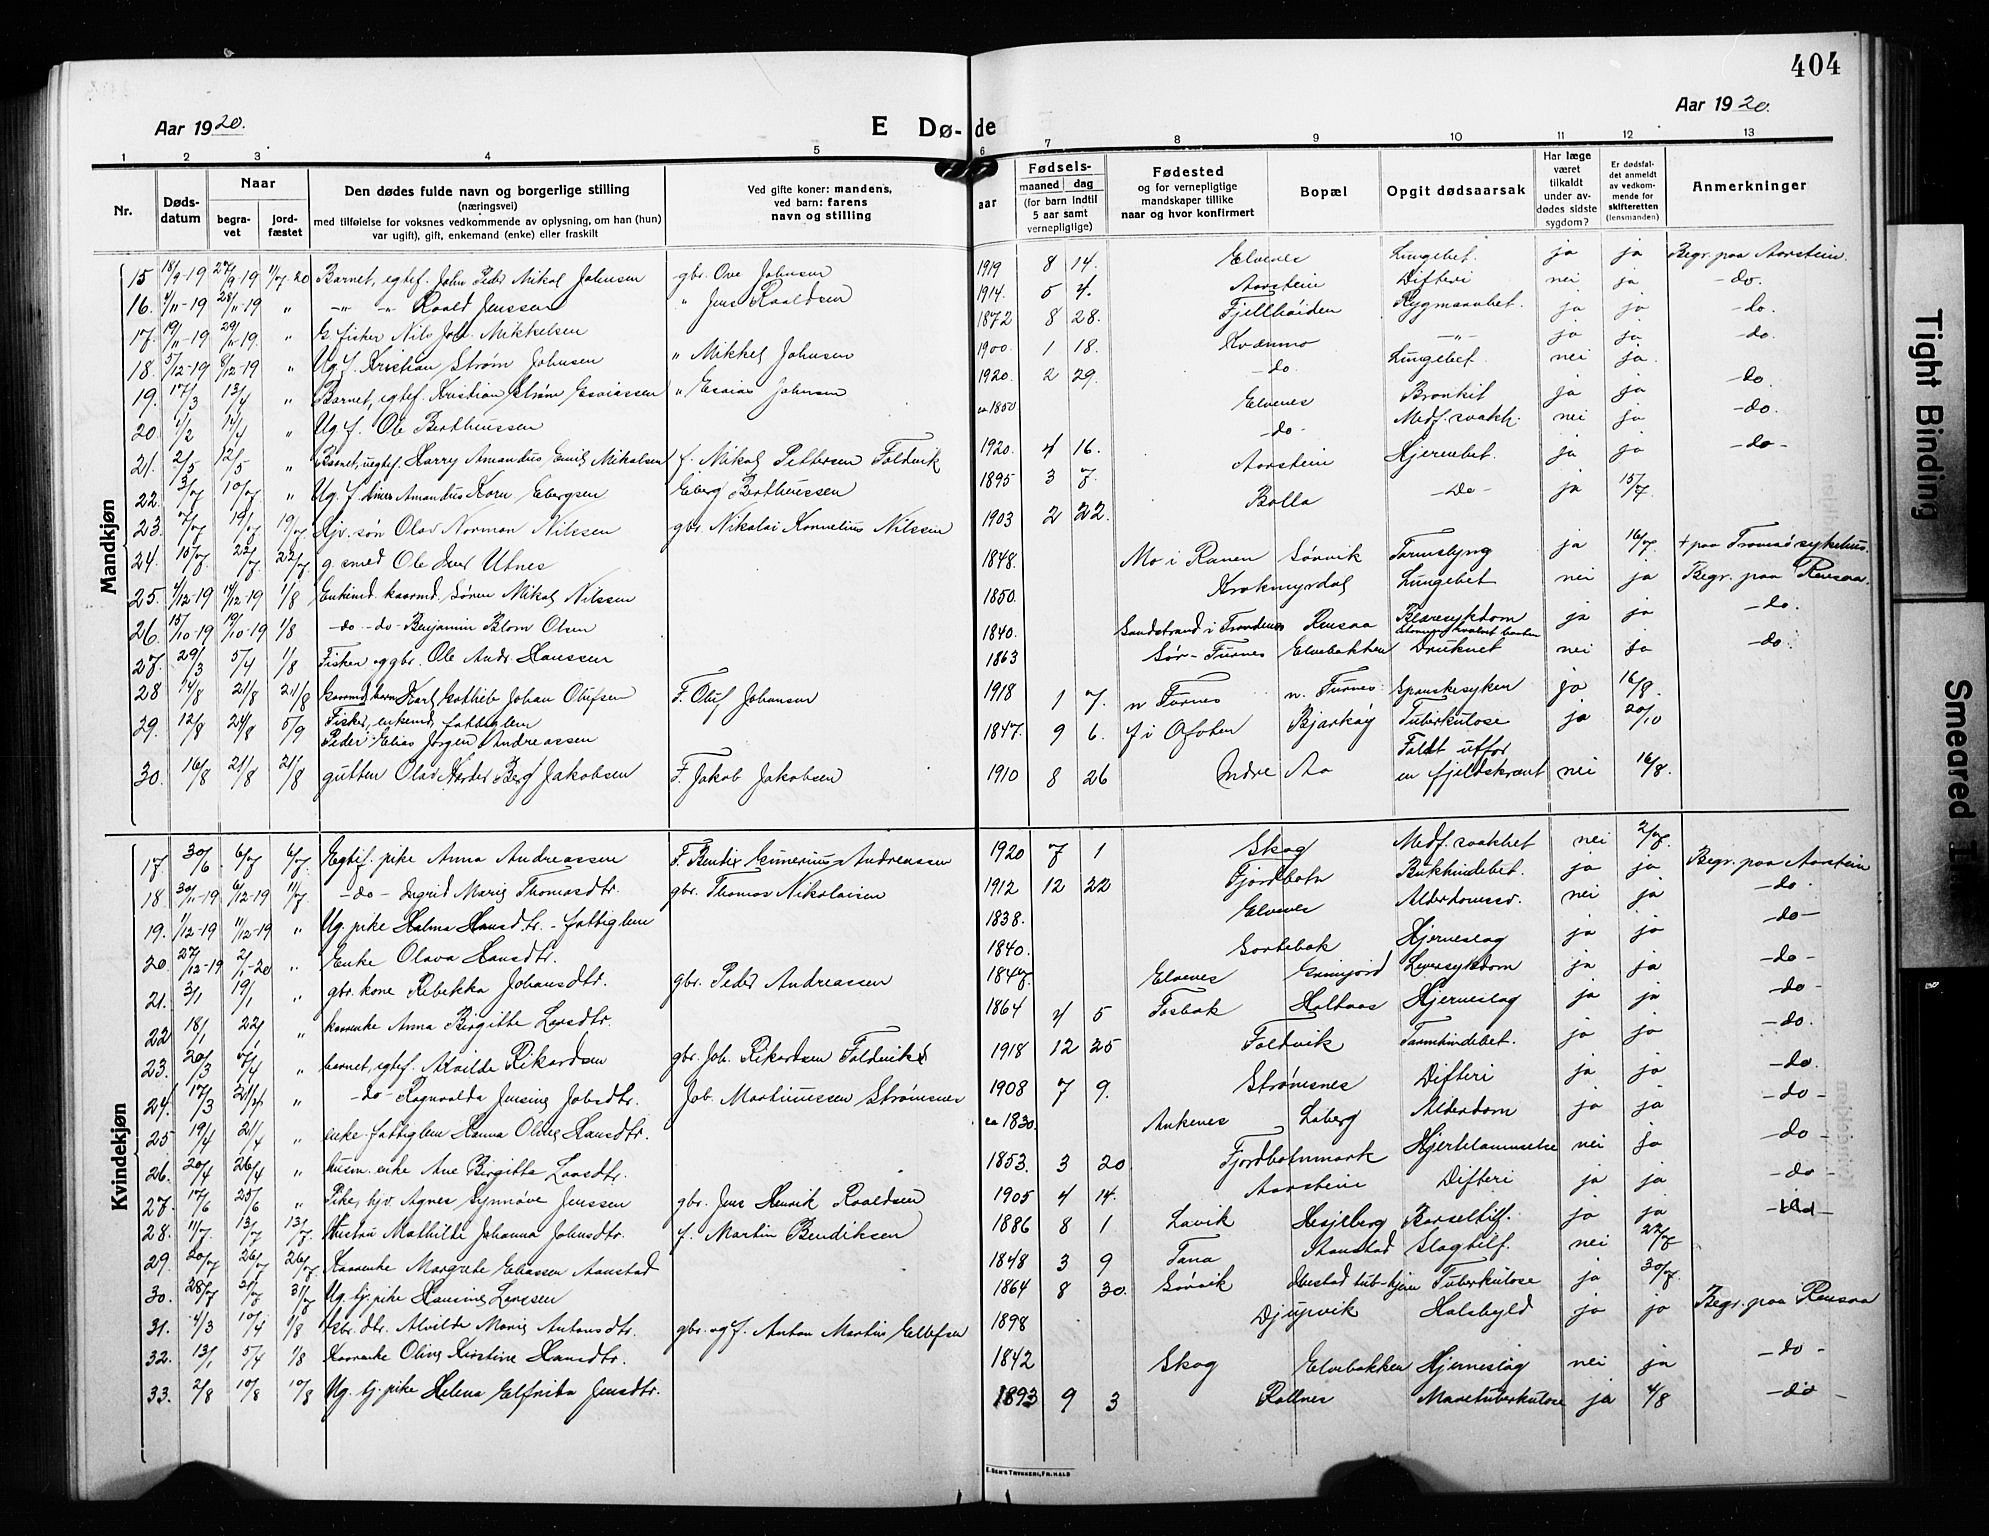 404
Aar 1920.
E Dø-
de
Aar 1920.
1 2 3 4 5 6 7 8 9 10 11 12 13
Nr.
Døds-
datum
Naar
begra-
vet
jord-
fæstet
Den dødes fulde navn og borgerlige stilling
(næringsvei)
med tilføielse for voksnes vedkommende av oplysning, om han (hun)
var ugift), gift, enkemand (enke) eller fraskilt
Ved gifte koner: mandens,
ved barn: farens
navn og stilling
Fødsels-
aar
maaned dag
(for barn indtil
5 aar samt
vernepligtige)
Fødested
og for vernepligtige
mandskaper tillike
naar og hvor konfirmert
Bopæl
Opgit dødsaarsak
Har læge
været
tilkaldt
under av-
dødes sidste
sygdom?
Er dødsfal-
det anmeldt
av vedkom-
mende for
skifteretten
(lensmanden)
Anmerkninger
Mandkjøn
15 18/9-19 27/9-19 11/7-20 Barnet, egtef. John Peder Mikal Johnsen gbr. Ove Johnsen 1919 8 14. Elvenes Lungebet. ja ja Begr. paa Aarstein.
16. 4/11-19 28/11-19 " -"- -"- Roald Jenssen " Jens Roaldsen 1914. 5 4. Aarstein Difteri nei ja -do.
17. 19/11-19 29/11-19 " G. fisker Nils Joh. Mikkelsen 1872 8 28. Fjellhøiden Rygmarvbet. ja ja -do.
18. 5/12-19 8/12-19 " Ug. f. Kristian Strøm Johnsen " Mikkel Johnsen 1900. 1 18. Kvænmo -"- ja ja. -do.
19. 17/3 13/4 " Barnet, egtef. Kristian Strøm Esaiassen " Esaias Johnsen 1920. 2 29. -do- Lungebet. nei ja. -do.
20. 1/2 14/4 " Ug. f. Ole Berthenssen ca 1850 Elvenes Bronkit ja ja -do.
21. 2/5 12/5 " Barnet, uegtef. Harry Amandus Emil Mikalsen f. Mikal Pettersen Foldvik 1920. 4 16. -do- Medf. svakh. nei ja -do-
22. 3/7 10/7 " Ug. f. Amandus Korn Ebergsen Eberg Berthenssen 1895 3 7. Aarstein Hjernebet. ja ja
23. 7/7 19/7 19/7 Gjv. søn Olav Norman Nilssen gbr. Nikolai Kornelius Nilssen 1903 2 22. Bolla -Do- ja 15/7.
24. 15/7 22/7 22/7 g. smed Ole Iver Utnes 1848. Mo i Ranen Sørvik Tarmslyng ja 16/7. + paa Tromsø sykehus.
25. 4/12-19 14/12-19 1/8 Enkemd. kaarmd. Søren Mikal Nilssen 1850. Krokmyrdal Lungebet nei ja Begr. paa Rensaa.
26. 15/10-19 19/10-19 1/8 -do- -do- Benjamin Blom Olsen 1840. Sandstrand i Trondenes Rensaa Blæresykdom ja ja -do.
27. 29/3 5/4 1/8 Fisker og gbr. Ole Andr. Hanssen 1863 Sør-Furnes Elvebakken Druknet nei ja -do.
28 14/8 21/8 21/8 Karl Gotlieb Johan Olufsen F. Oluf Johansen 1918 1 7. n Furnes n. Furnes Spanskesyken ja 16/8.
29. 12/8 24/8 5/9 Fisker, enkemd., fattiglem
Peder Elias Jørgen Andreassen 1847. 9 6. f i Ofoten Bjarkøy Tuberkulose ja 20/10
30. 16/8 21/8 21/8 gutten Olav Berg Jakobsen F. Jakob Jakobsen 1910 8 26 Indre Aa Faldt utfor
en fjeldskrænt nei 16/8.
Kvindekjøn
17. 30/6 6/7 6/7. Egtef. pike Anna Andreassen F. Bendix Emerius Andreassen 1920 7 1 Skog Medf. svakhet nei 2/7.
18. 30/11-19 6/12-19 11/7. -do- Ingrid Marie Thomasdtr. gbr. Thomas Nikolaisen 1912 12 22 Fjordbotn Bukhindebet. ja ja Begr. paa Aarstein
19. 1/12-19 11/12-19 " Ug. pike Halma Hansdtr. - fattiglem 1838. Elvenes Alderdomssv. nei ja -do-
20. 27/12-19 2/1-20 " Enke Olava Hansdtr. 1840. Sortebak Hjerneslag ja ja -do-
21. 3/1 19/1 " gbr. kone Rebekka Johansdtr. gbr. Peder Andreassen 1847. Elvenes Grinjord Leversykdom ja ja -do-
22 18/1 22/1 " kaarenke Anna Birgitte Larsdtr. 1864 4 5 Fosbak Holtaas Hjerneslag ja ja -do
23. 20/3 7/4 " barnet, egtef. Alvilde Rikardsen gbr. Joh. Rikardsen Foldvik 1918 12 25 Foldvik Tarmhindebet. ja ja -do.
24. 17/3 21/4 " -do- Ragnvalda Jensine Jobsdtr. Job. Martinussen Strømsnes 1908 7 9. Strømsnes Difteri ja ja -do.
25 19/4 21/4 " enke fattiglem Hanna Oline Hansdtr. ca 1830. Ankenes Laberg Alderdom ja ja -do-
26. 20/4 26/4 " husm. enke Ane Birgitta Larsdtr. 1853. 3 20 Fjordbotnmark Hjertelammelse nei ja -do-
27. 17/6 25/6 " Pike, hjv. Agnes Synnøve Jenssen gbr. Jens Henrik Roaldsen 1905 4 14. Aarstein Difteri ja ja -do-
28. 11/7. 13/7 13/7. Hustru Mathilde Johanna Johnsdtr. f. Martin Bendiksen 1886 8 1 Lavik Hesjeberg Barseltilf. ja ja
29. 20/7 26/7 26/7. Kaarenke Margrete Eliassen Aanstad 1848 3 9 Tana Aanstad Slagtilf. nei 22/7
30. 28/7 31/7 31/7 Ug. tj. pike Hansine Larssen 1864 8 30. Sørvik Ibestad tub-hjem Tuberkulose ja 30/7.
31. 4/3 10/4 1/8 gbr. dtr. Alvilde Marie Antonsdtr. gbr. og f. Anton Martin Ellefsen 1898 Djupvik Halsbyld ja ja Begr. paa Rensaa
32. 13/1 5/4 1/8 Kaarenke Oline Kirstine Hansdtr. 1842 Skog Elvebakken Hjerneslag nei ja -do-
33. 2/8 10/8 10/8 Ug. tj. pike Helena Elfrida Jensdtr. 1893 9 3 Rollnes Mavetuberkulose ja 4/8 -do-
E. SEM'S TRYKKERI, FR.HALD
Tight Binding
Smeared I